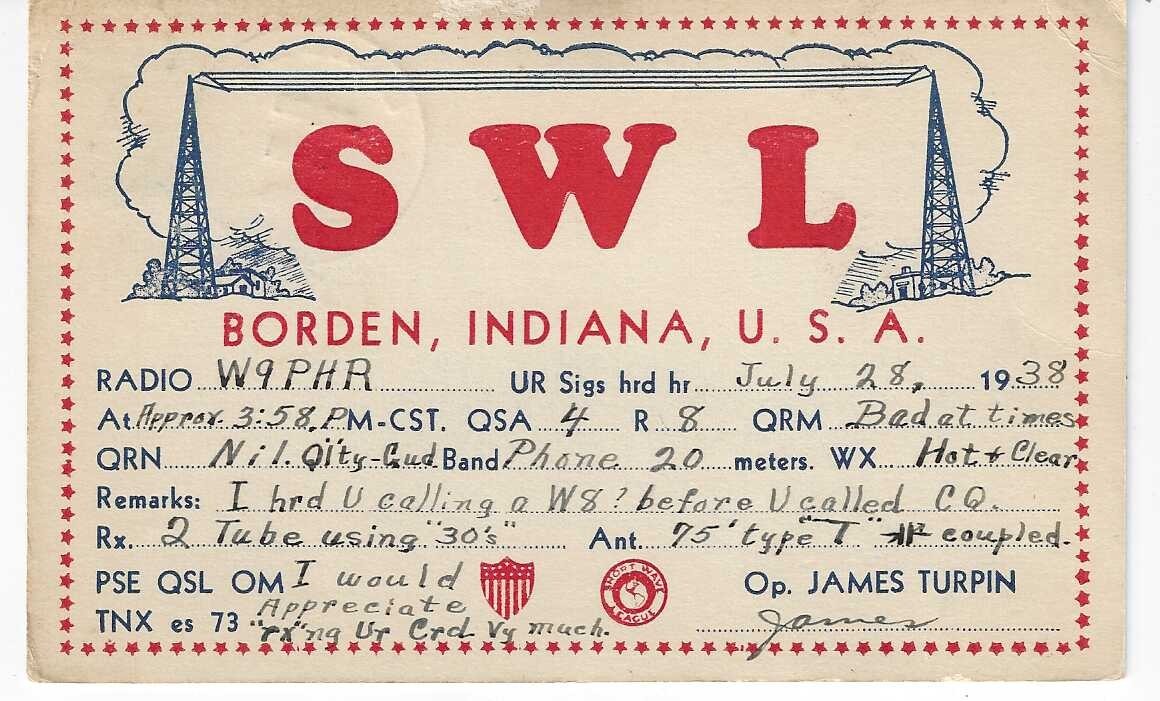 SWL
BORDEN, INDIANA, U. S. A.
RADIO W9PHR UR Sigs hrd hr July 28, 1938
At Approx. 3:58 PM-CST. QSA 4 R 8 QRM Bad at times
QRN Nil. Q"lty-Gud Band Phone 20 meters. WX Hot & Clear
Remarks: I hrd U calling a W8? before U called CQ.
Rx. 2 Tube using "30's" Ant. 75' type "T" coupled.
PSE QSL OM I would Op. JAMES TURPIN
Appreciate
TNX es 73 "rx"ng Ur Crd Vy much. James
SHORT WAVE LEAGUE